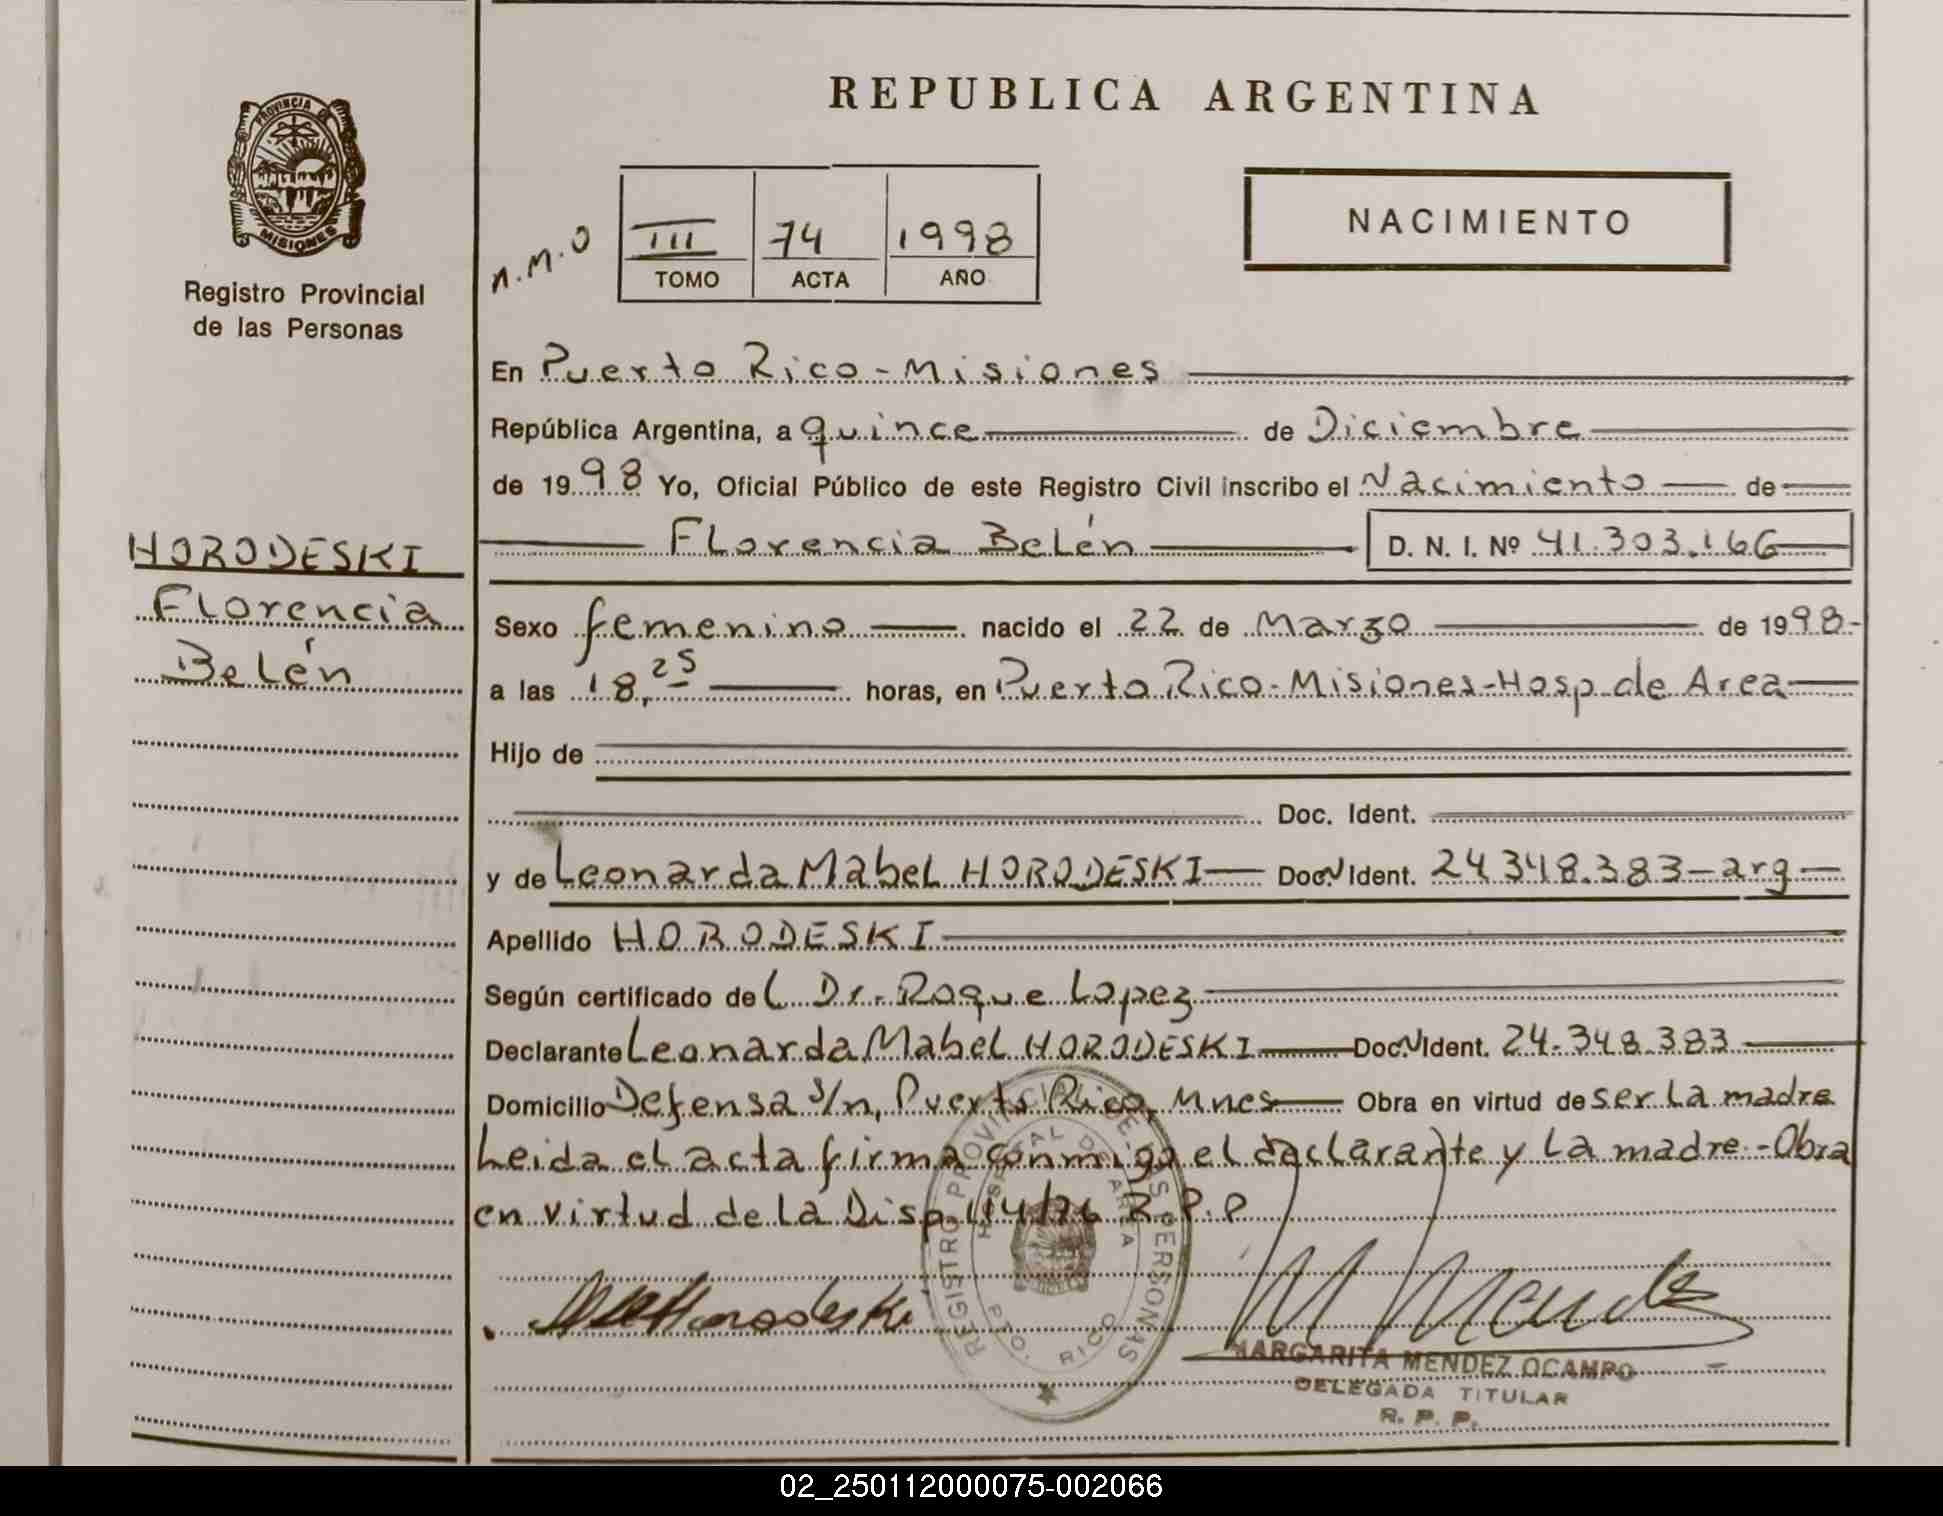 REPUBLICA ARGENTINA
PROVINCIA DE MISIONES
Registro Provincial
de las Personas
n.m.o
III 74 1998
TOMO ACTA AÑO
NACIMIENTO
En Puerto Rico - Misiones
República Argentina, a quince de Diciembre
de 1998 Yo, Oficial Público de este Registro Civil inscribo el Nacimiento de
Florencia Belén D. N. I. Nº 41.303.166
HORODESKI
Florencia
Belén
Sexo femenino nacido el 22 de Marzo de 1998-
a las 18,25 horas, en Puerto Rico-Misiones-Hosp de Area
Hijo de
Doc. Ident.
y de Leonarda Mabel HORODESKI Doc.N Ident. 24.348.383-arg
Apellido HORODESKI
Según certificado del Dr. Roque Lopez
Declarante Leonarda Mabel HORODESKI Doc.N Ident. 24.348.383
Domicilio Defensa s/n, Puerto Rico, Mnes Obra en virtud de ser la madre
Leida el acta firma conmigo el declarante y la madre.-Obra
en virtud de la Disp. 114/76 R.P.P
REGISTRO PROVINCIAL DE LAS PERSONAS
HOSPITAL DE AREA
PTO. RICO
Horodeski
M Mendez
MARGARITA MENDEZ OCAMPO
DELEGADA TITULAR
R. P. P.
02_250112000075-002066